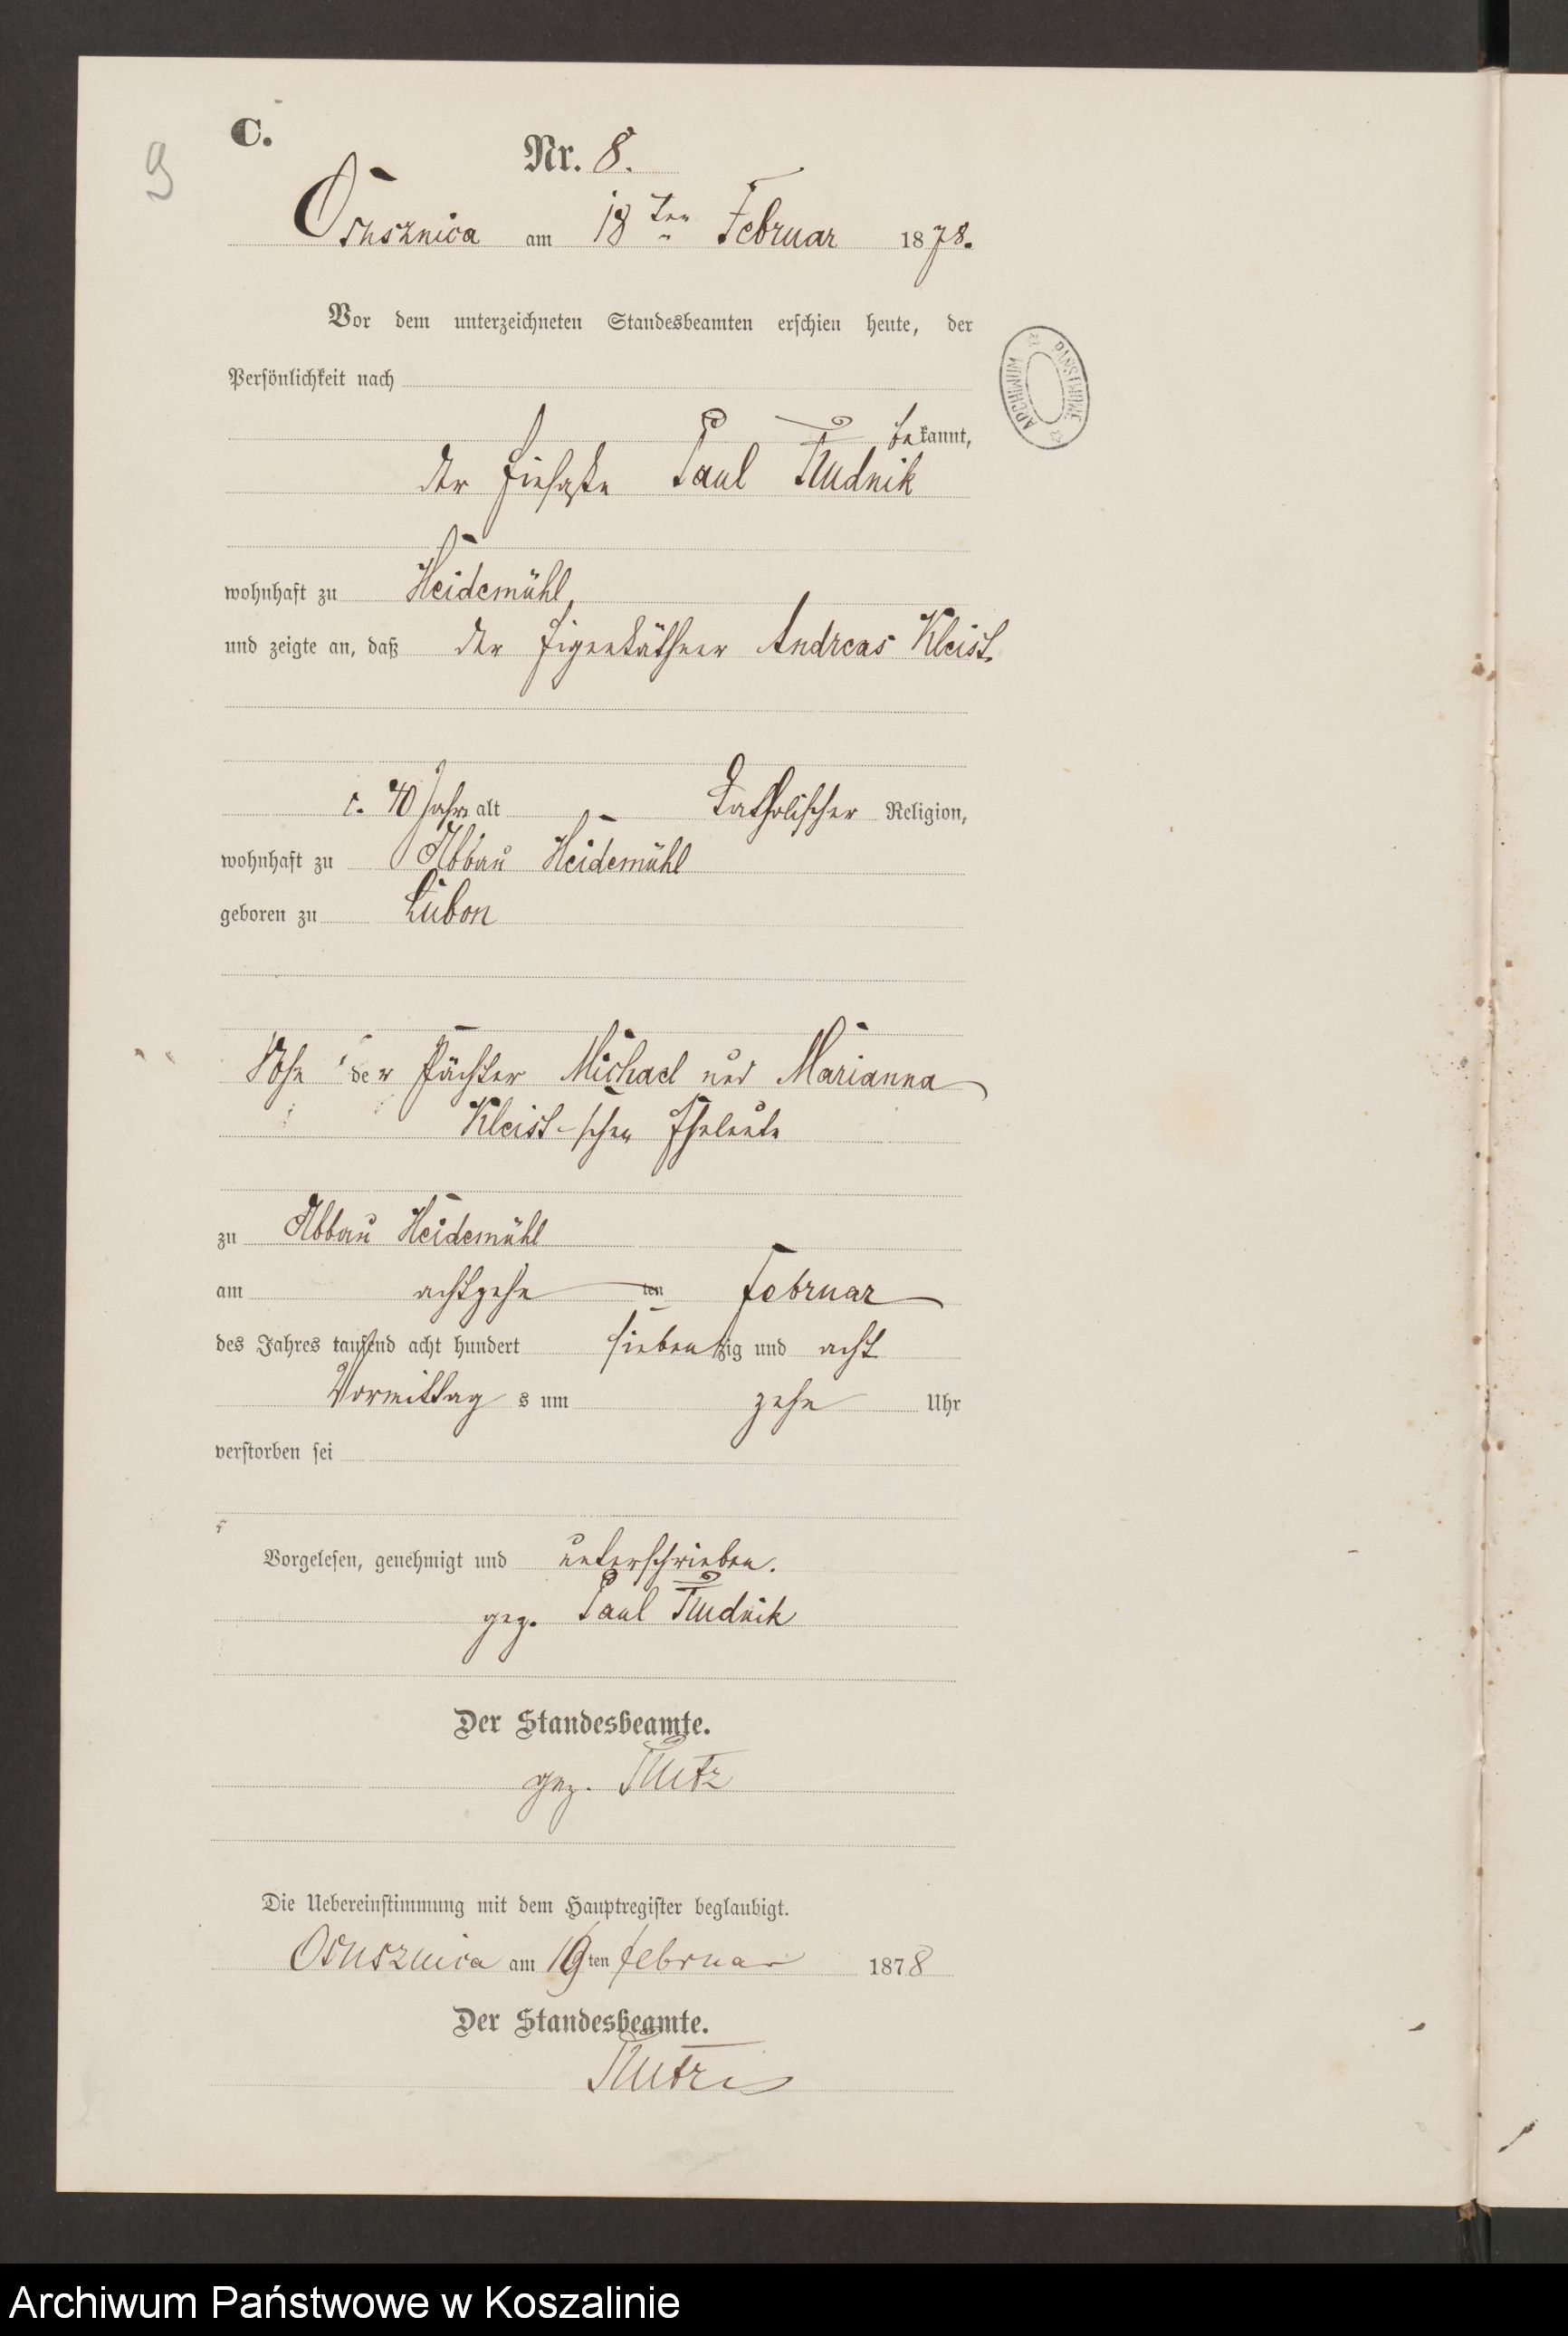 C.
9
Nr. 8.
Osusznica am 18ten Februar 1878.
Vor dem unterzeichneten Standesbeamten erschien heute, der
Persönlichkeit nach
bekannt,
der Einsaße Paul Rudnik
wohnhaft zu Heidemühl,
und zeigte an, daß der Eigenkäthner Andreas Kleist.
c. 40 Jahre alt katholischer Religion,
wohnhaft zu Abbau Heidemühl
geboren zu Lubon
Sohn der Pächter Michael und Marianna
Kleist-schen Eheleute
zu Abbau Heidemühl
am achtzehnten Februar
des Jahres tausend acht hundert siebenzig und acht
Vormittags um zehn Uhr
verstorben sei
Vorgelesen, genehmigt und unterschrieben.
gez. Paul Rudnik
Der Standesbeamte.
gez.
Die Uebereinstimmung mit dem Hauptregister beglaubigt.
Osusznica am 19ten Februar 1878
Der Standesbeamte.
ARCHIWUM PAŃSTWOWE
Archiwum Państwowe w Koszalinie